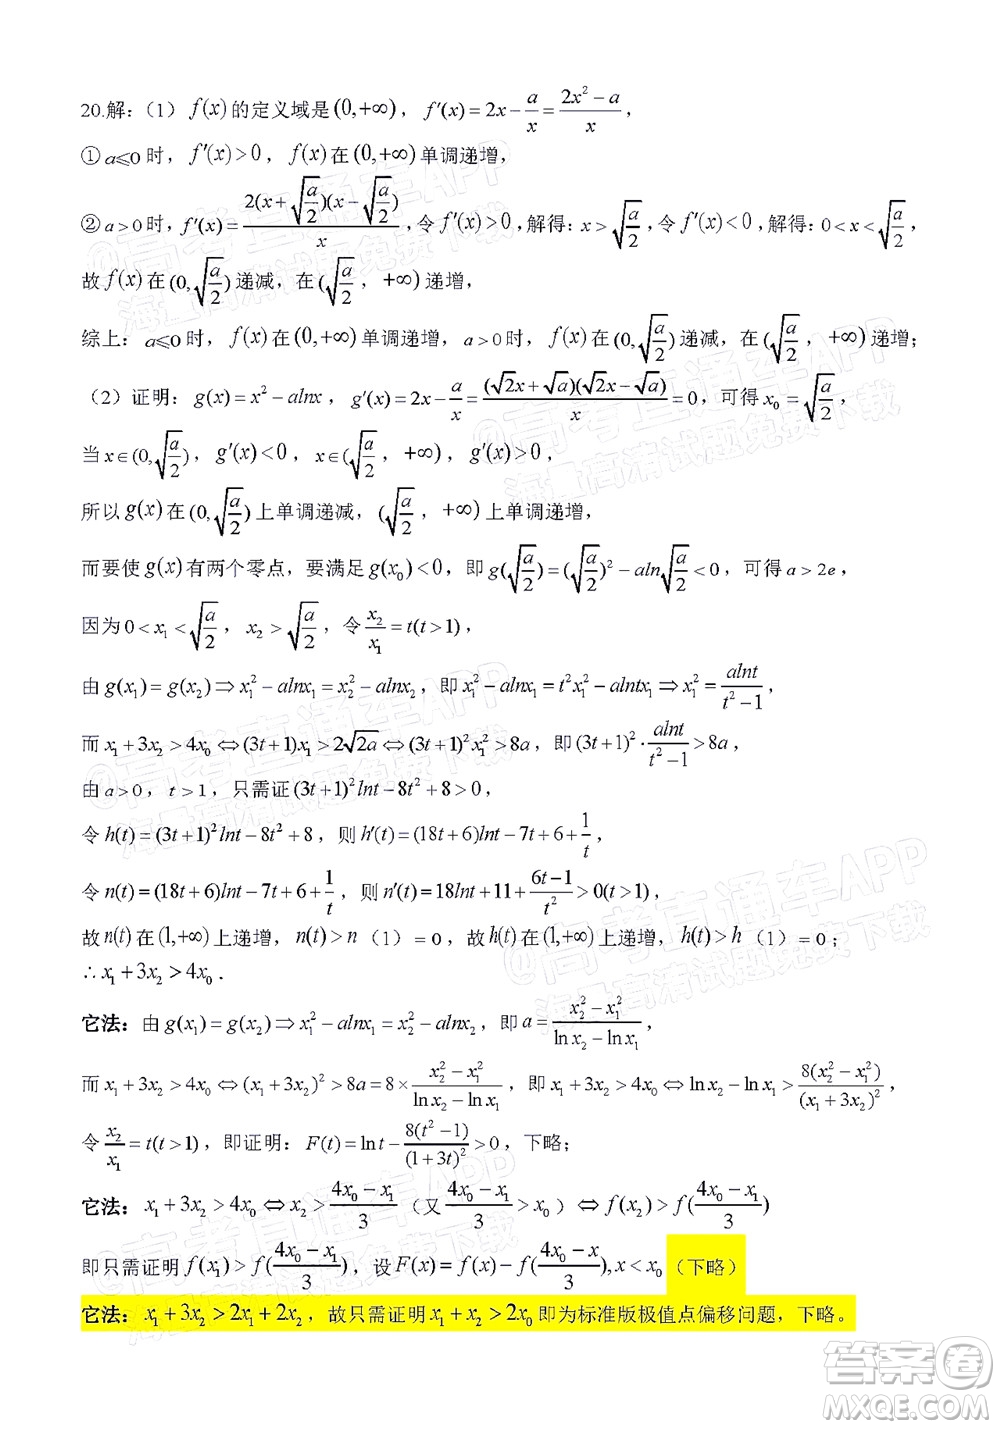 20.解：（1） f(x) 的定义域是 (0,+∞)， f′(x)=2x−a/x=(2x²−a)/x，
① a⩽0 时， f′(x)>0， f(x) 在 (0,+∞) 单调递增，
② a>0 时， f′(x)=2(x+√(a/2))(x−√(a/2))/x，令 f′(x)>0，解得： x>√(a/2)，令 f′(x)<0，解得：0<x<√(a/2)，
故 f(x) 在 (0,√(a/2)) 递减，在 (√(a/2)，+∞) 递增，
综上：a⩽0 时， f(x) 在 (0,+∞) 单调递增，a>0 时， f(x) 在 (0,√(a/2)) 递减，在 (√(a/2)，+∞) 递增；
（2）证明： g(x)=x²−alnx， g′(x)=2x−a/x=(√2x+√a)(√2x−√a)/x=0，可得 x₀=√(a/2)，
当 x∈(0,√(a/2))， g′(x)<0， x∈(√(a/2)，+∞)， g′(x)>0，
所以 g(x) 在 (0,√(a/2)) 上单调递减， (√(a/2)，+∞) 上单调递增，
而要使 g(x) 有两个零点，要满足 g(x₀)<0，即 g(√(a/2))=(√(a/2))²−aln√(a/2)<0，可得 a>2e，
因为 0<x₁<√(a/2)， x₂>√(a/2)，令 x₂/x₁=t(t>1)，
由 g(x₁)=g(x₂)⇒x₁²−alnx₁=x₂²−alnx₂，即 x₁²−alnx₁=t²x₁²−alntx₁⇒x₁²=alnt/(t²−1)，
而 x₁+3x₂>4x₀⇔(3t+1)x₁>2√2a⇔(3t+1)²x₁²>8a，即 (3t+1)²·alnt/(t²−1)>8a，
由 a>0， t>1，只需证 (3t+1)²lnt−8t²+8>0，
令 h(t)=(3t+1)²lnt−8t²+8，则 h′(t)=(18t+6)lnt−7t+6+1/t，
令 n(t)=(18t+6)lnt−7t+6+1/t，则 n′(t)=18lnt+11+(6t−1)/t²>0(t>1)，
故 n(t) 在 (1,+∞) 上递增， n(t)>n（1）=0，故 h(t) 在 (1,+∞) 上递增， h(t)>h（1）=0；
∴x₁+3x₂>4x₀．
它法：由 g(x₁)=g(x₂)⇒x₁²−alnx₁=x₂²−alnx₂，即 a=(x₂²−x₁²)/(ln x₂−ln x₁)，
而 x₁+3x₂>4x₀⇔(x₁+3x₂)²>8a=8×(x₂²−x₁²)/(ln x₂−ln x₁)，即 x₁+3x₂>4x₀⇔ln x₂−ln x₁>8(x₂²−x₁²)/(x₁+3x₂)²，
令 x₂/x₁=t(t>1)，即证明： F(t)=ln t−8(t²−1)/(1+3t)²>0，下略；
它法： x₁+3x₂>4x₀⇔x₂>(4x₀−x₁)/3（又 (4x₀−x₁)/3>x₀）⇔f(x₂)>f((4x₀−x₁)/3)
即只需证明 f(x₁)>f((4x₀−x₁)/3)，设 F(x)=f(x)−f((4x₀−x)/3),x<x₀（下略）
它法： x₁+3x₂>2x₁+2x₂，故只需证明 x₁+x₂>2x₀ 即为标准版极值点偏移问题，下略。
答案卷
MXQE.COM
@高考直通车APP
海量高清试题免费下载
@高考直通车APP
海量高清试题免费下载
@高考直通车APP
海量高清试题免费下载
@高考直通车APP
海量高清试题免费下载
@高考直通车APP
海量高清试题免费下载